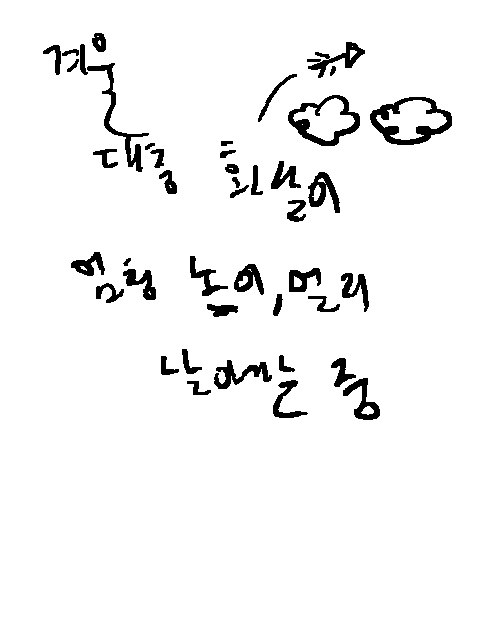 겨우
대충 화살이
엄청 높이, 멀리
날아가는 중